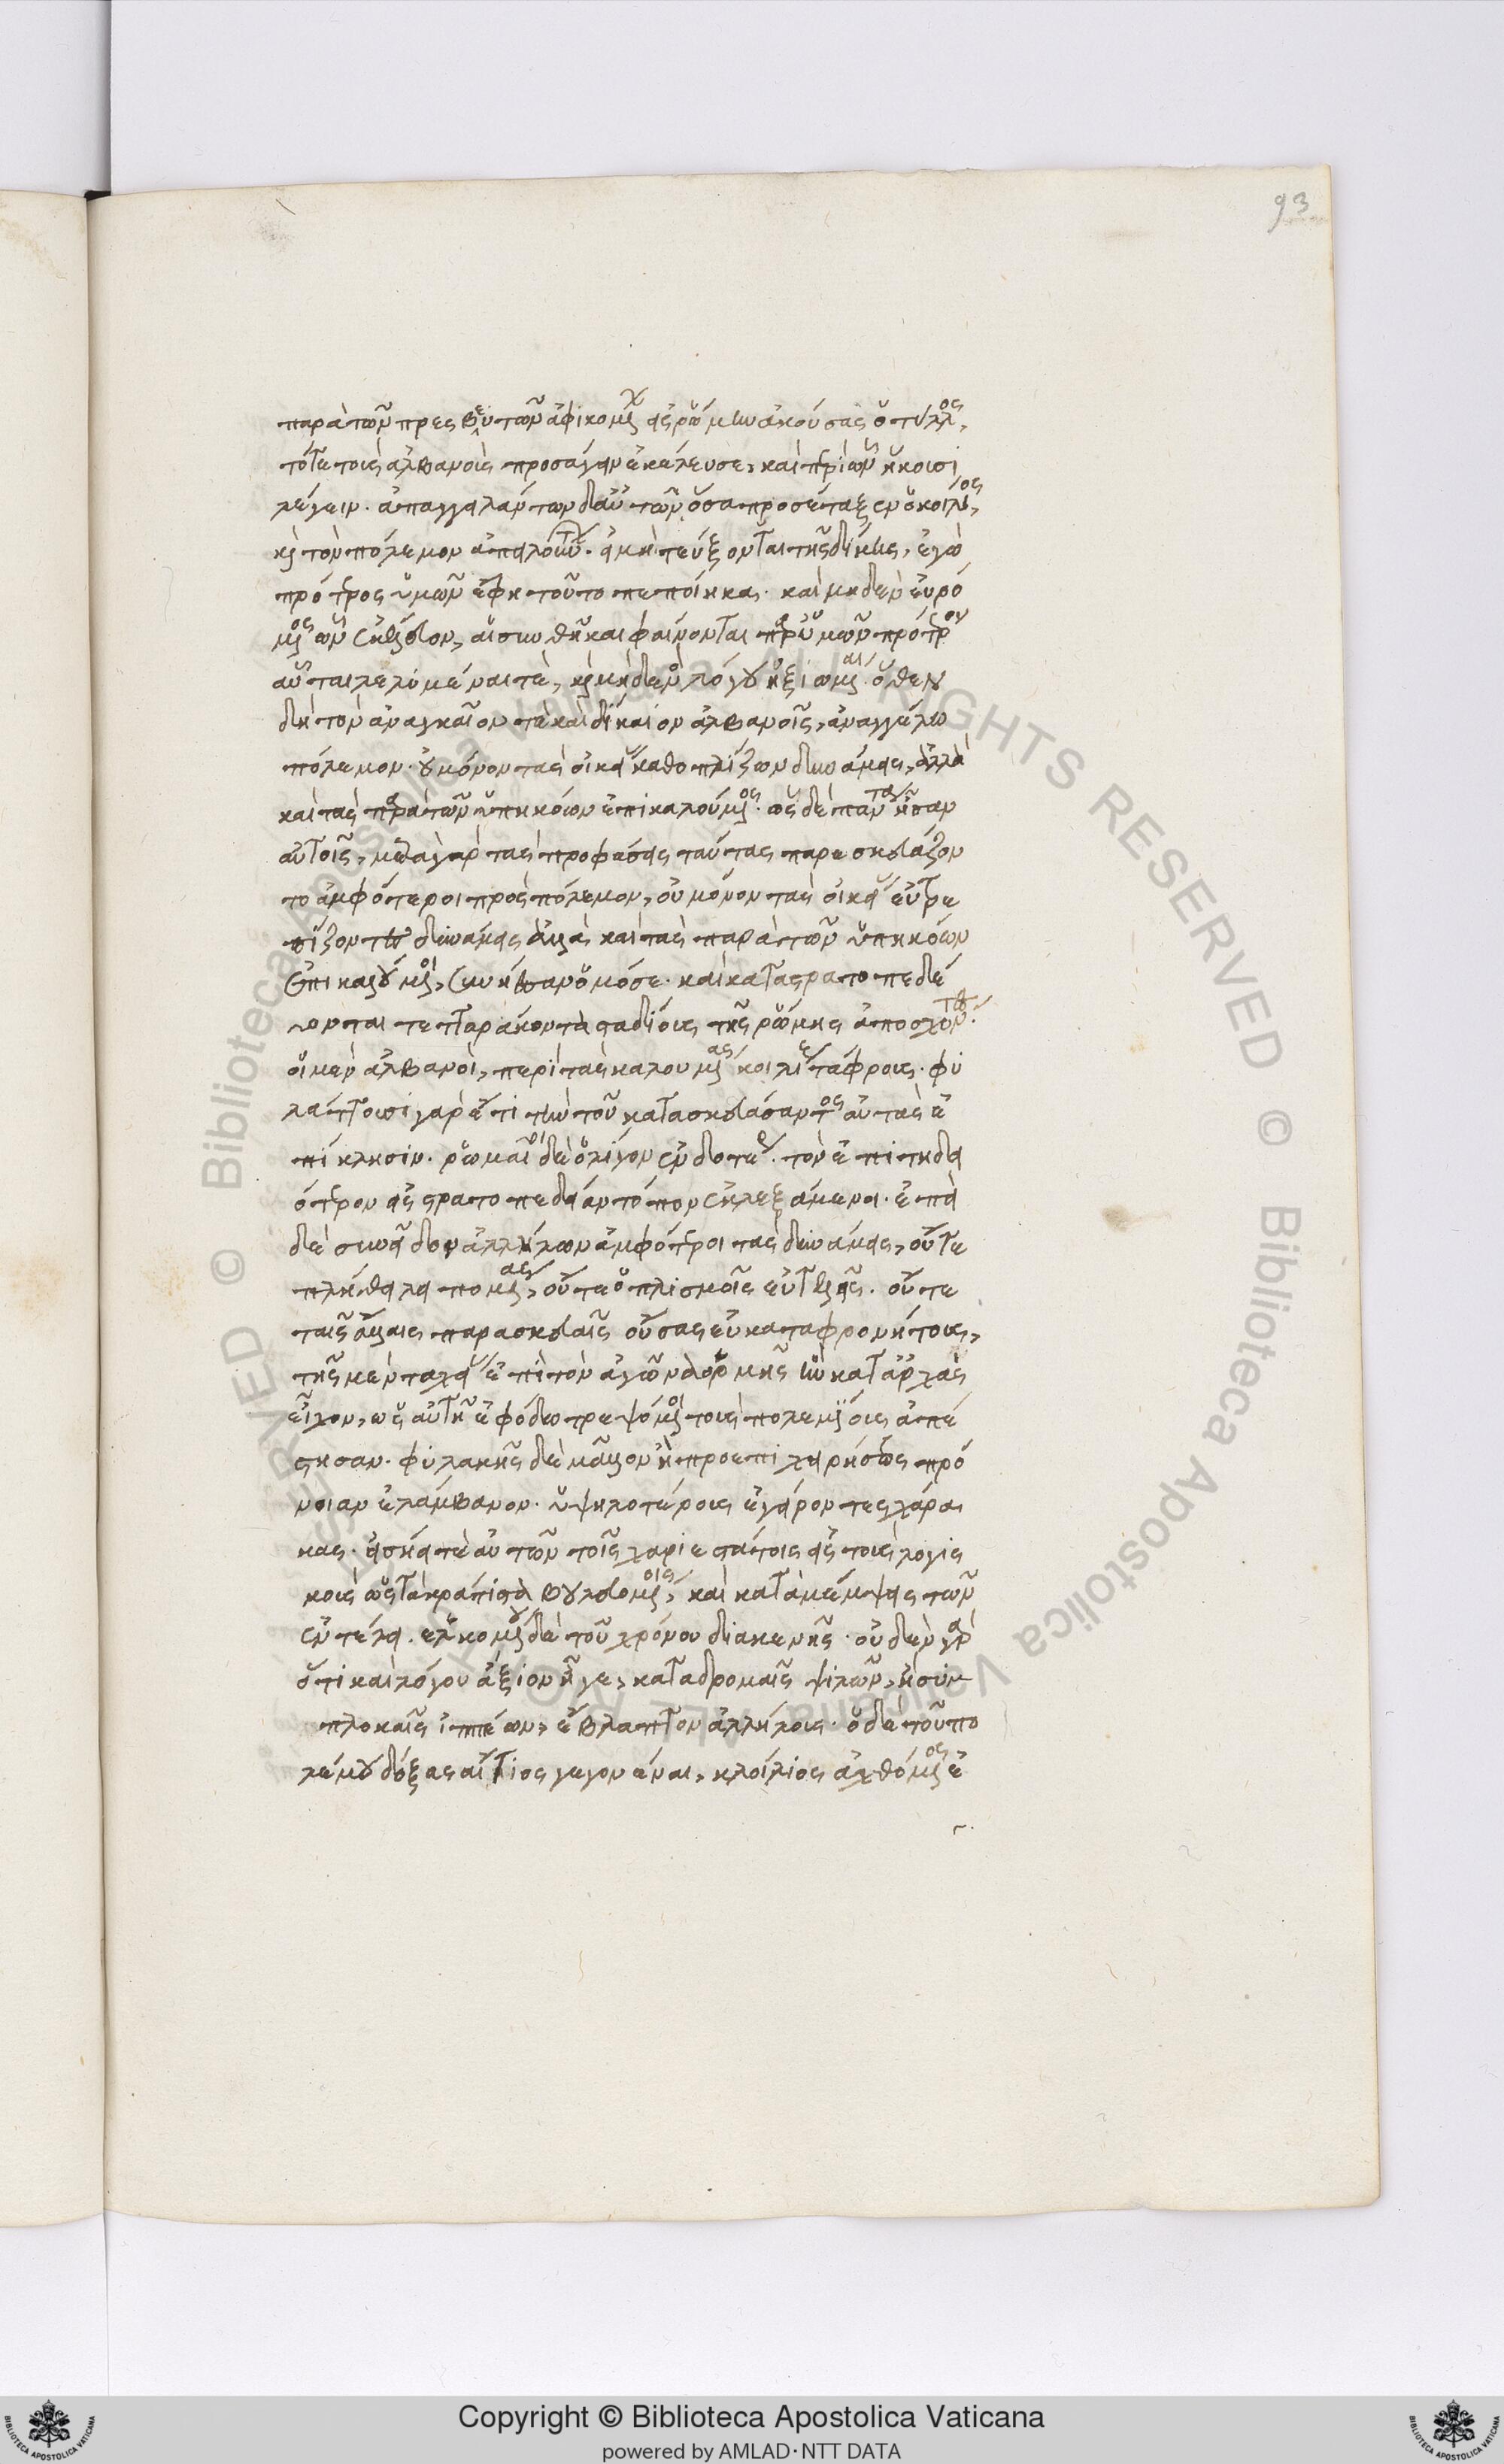 93
παρὰ τῶν πρεσβευτῶν ἀφικομένων εἰς ῥώμην ἀκούσας ὁ τύλλος,
τότε τοὺς ἀλβανοὺς προσάγειν ἐκέλευσε, καὶ περὶ ὧν ἥκουσι
λέγειν. ἀπαγγειλάντων δ' αὐτῶν ὅσα προσέταξεν ὁ κοίλιος,
καὶ τὸν πόλεμον ἀπειλούντων. εἰ μὴ τεύξονται τῆς δίκης, ἐγὼ
πρότερος ὑμῶν ἔφη τοῦτο πεποίηκα. καὶ μηδὲν εὑρό
μενος ὧν
αὗται λελυμέναι τὲ, καὶ μηδενὸς λόγου ἠξιωμέναι. ὅθεν
δὴ τὸν ἀναγκαῖον τὲ καὶ δίκαιον ἀλβανοῖς, ἀναγγέλω
πόλεμον. οὐ μόνον τὰς οἰκείας καθοπλίζων δυνάμεις, ἀλλὰ
καὶ τὰς παρὰ τῶν ὑπηκόων ἐπικαλούμενος. ὡς δὲ πάντα ἦσαν
αὐτοῖς, μετὰ γὰρ τὰς προφάσεις ταύτας παρεσκευάζον
το ἀμφότεροι πρὸς πόλεμον, οὐ μόνον τὰς οἰκείας εὐτρε
πίζοντες δυνάμεις ἀλλὰ καὶ τὰς παρὰ τῶν ὑπηκόων
ἐπικαλούμενοι, συνῆσαν ὁμόσε. καὶ καταστρατοπεδεύ
ονται τετταράκοντα σταδίους τῆς ῥώμης ἀποσχόντες.
οἱ μὲν ἀλβανοὶ, περὶ τὰς καλουμένας κοιλίας τάφρους. φυ
λάττουσι γὰρ ἔτι τὴν τοῦ κατασκευάσαντος αὐτὰς ἐ
πίκλησιν. ῥωμαῖοι δὲ ὀλίγον ἐνδοτέρω. τὸν ἐπιτηδει
ότερον εἰς στρατοπεδείαν τόπον ἐκλεξάμενοι. ἐπεὶ
δὲ συνεῖδον ἀλλήλων ἀμφότεροι τὰς δυνάμεις, οὔτε
πλήθει λειπομένας, οὔτε ὁπλισμοῖς εὐτελεῖς. οὔτε
ταῖς ἄλλαις παρασκευαῖς οὔσας εὐκαταφρονήτους,
τῆς μὲν ταχείας ἐπὶ τὸν ἀγῶνα ὁρμῆς ἣν κατ' ἀρχὰς
εἶχον, ὡς αὐτῇ ἐφόδῳ τρεψόμενοι τοὺς πολεμίους ἀπέ
στησαν. φυλακῆς δὲ μᾶλλον ἢ προεπιχειρήσεως πρό
νοιαν ἐλάμβανον. ὑψηλοτέρους ἐγείροντες χάρα
κας. ἐσῄει τὲ αὐτῶν τοῖς χαριεστάτοις εἰς τοὺς λογισ
μοὺς ὡς τὰ κράτιστα βουλευομένοις, καὶ κατάμεμψις τῶν
ἐν τέλει. ἑλκομένου δὲ τοῦ χρόνου διακενῆς. οὐδὲν γὰρ
ὅτι καὶ λόγου ἄξιον ἦγε, καταδρομαῖς ψιλῶν, ἢ συμ
πλοκαῖς ἱππέων, ἔβλαπτον ἀλλήλους. ὁ δὲ τοῦ πο
λέμου δόξας αἴτιος γεγονέναι, κλοίλιος ἀχθόμενος ἐ